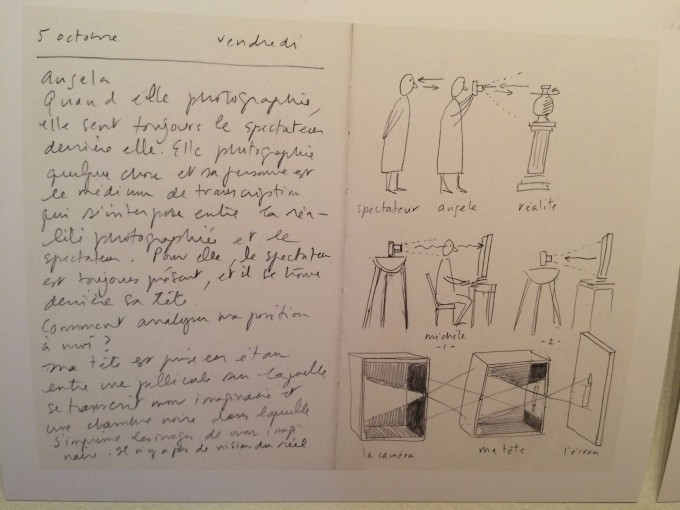 5 octobre vendredi
Angela
Quand elle photographie,
elle sent toujours le spectateur
derrière elle. Elle photographie
quelque chose et sa personne est
le médium de transcription
qui s'interpose entre la réa-
lité photographiée et le
spectateur. Pour elle, le spectateur
est toujours présent, et il se trouve
derrière sa tête.
Comment analyser ma position
à moi ?
Ma tête est prise en étau
entre une pellicule sur laquelle
se transcrit mon imaginaire et
une chambre noire dans laquelle
s'imprime les images de mon imagi-
naire. Il n'y a pas de vision du réel
spectateur angela réalité
michèle
-1- -2-
la caméra ma tête l'écran